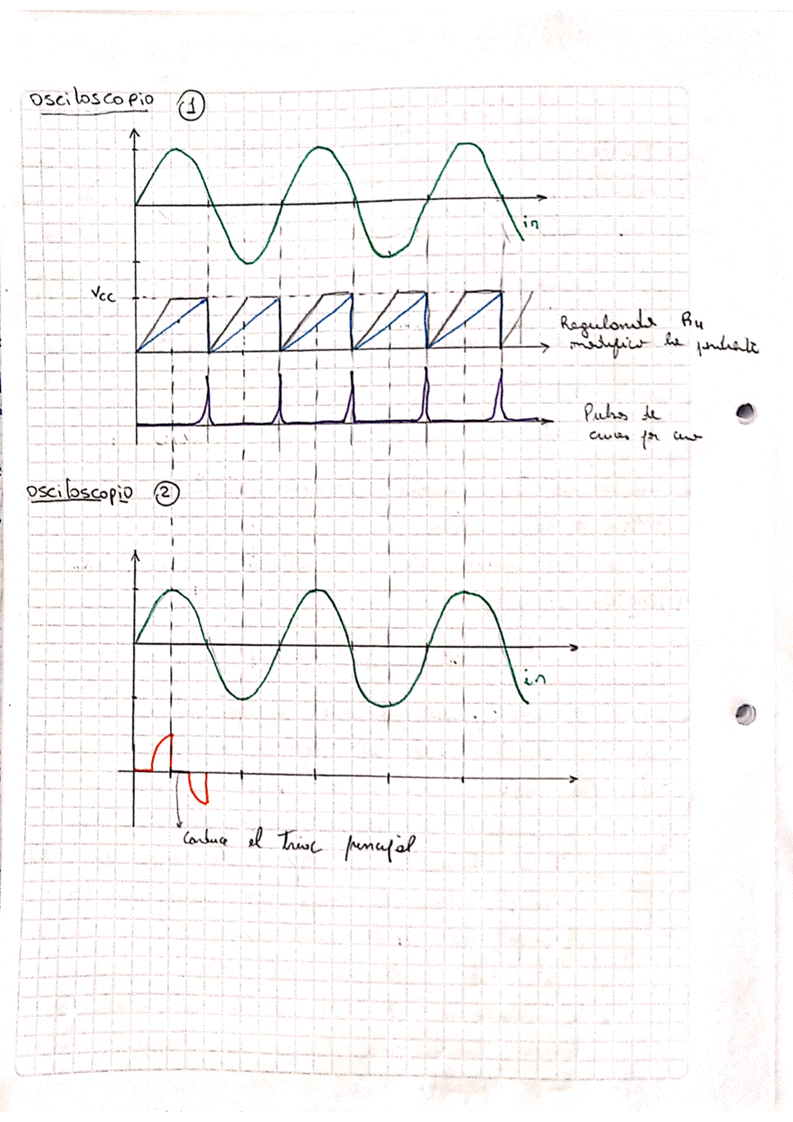 Osciloscopio 1
in
Vcc
Regulando R4
modifico la pendiente
Pulsos de
cruces por cero
Osciloscopio 2
in
Conduce el triac principal